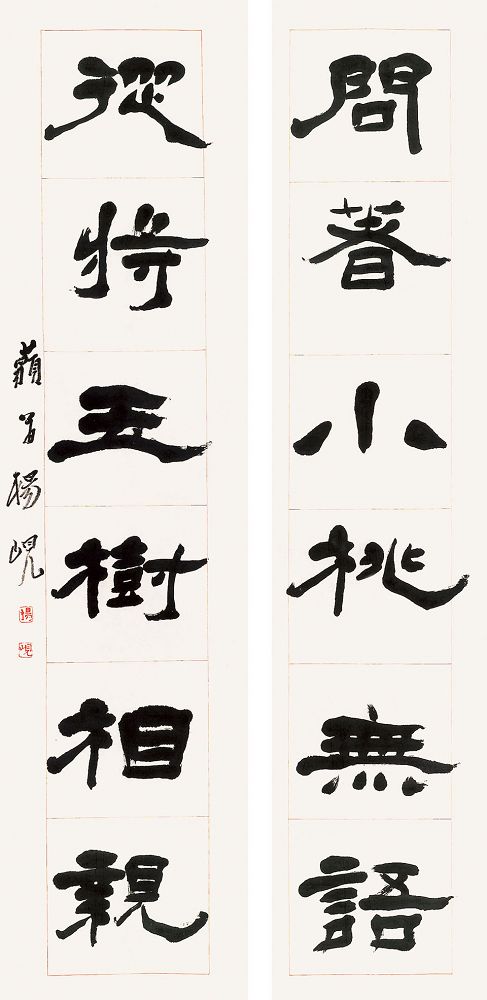 問著小桃無語
從將玉樹相親
楊峴
楊
峴